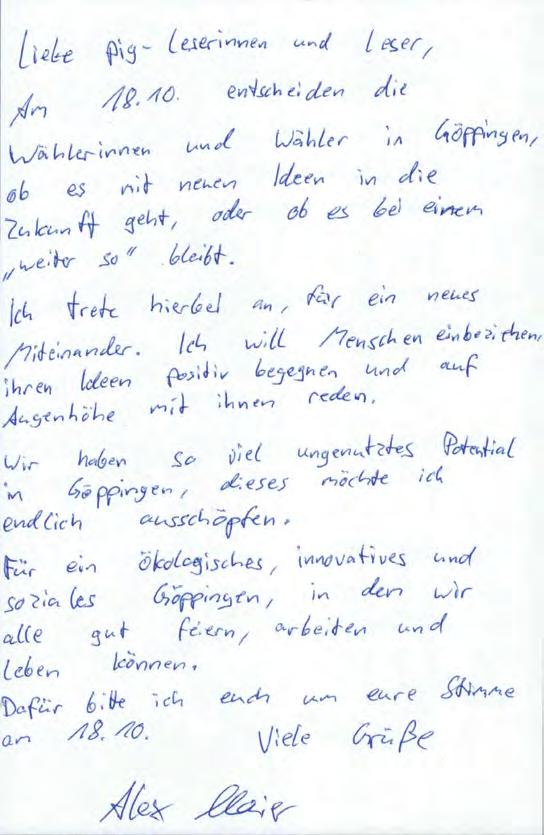 Liebe pig-Leserinnen und Leser,
Am 18.10. entscheiden die
Wählerinnen und Wähler in Göppingen,
ob es mit neuen Ideen in die
Zukunft geht, oder ob es bei einem
„weiter so" bleibt.
Ich trete hierbei an, für ein neues
Miteinander. Ich will Menschen einbeziehen,
ihren Ideen positiv begegnen und auf
Augenhöhe mit ihnen reden.
Wir haben so viel ungenutztes Potential
in Göppingen, dieses möchte ich
endlich ausschöpfen.
Für ein ökologisches, innovatives und
soziales Göppingen, in dem wir
alle gut feiern, arbeiten und
leben können.
Dafür bitte ich euch um eure Stimme
am 18.10. Viele Grüße
Alex Maier